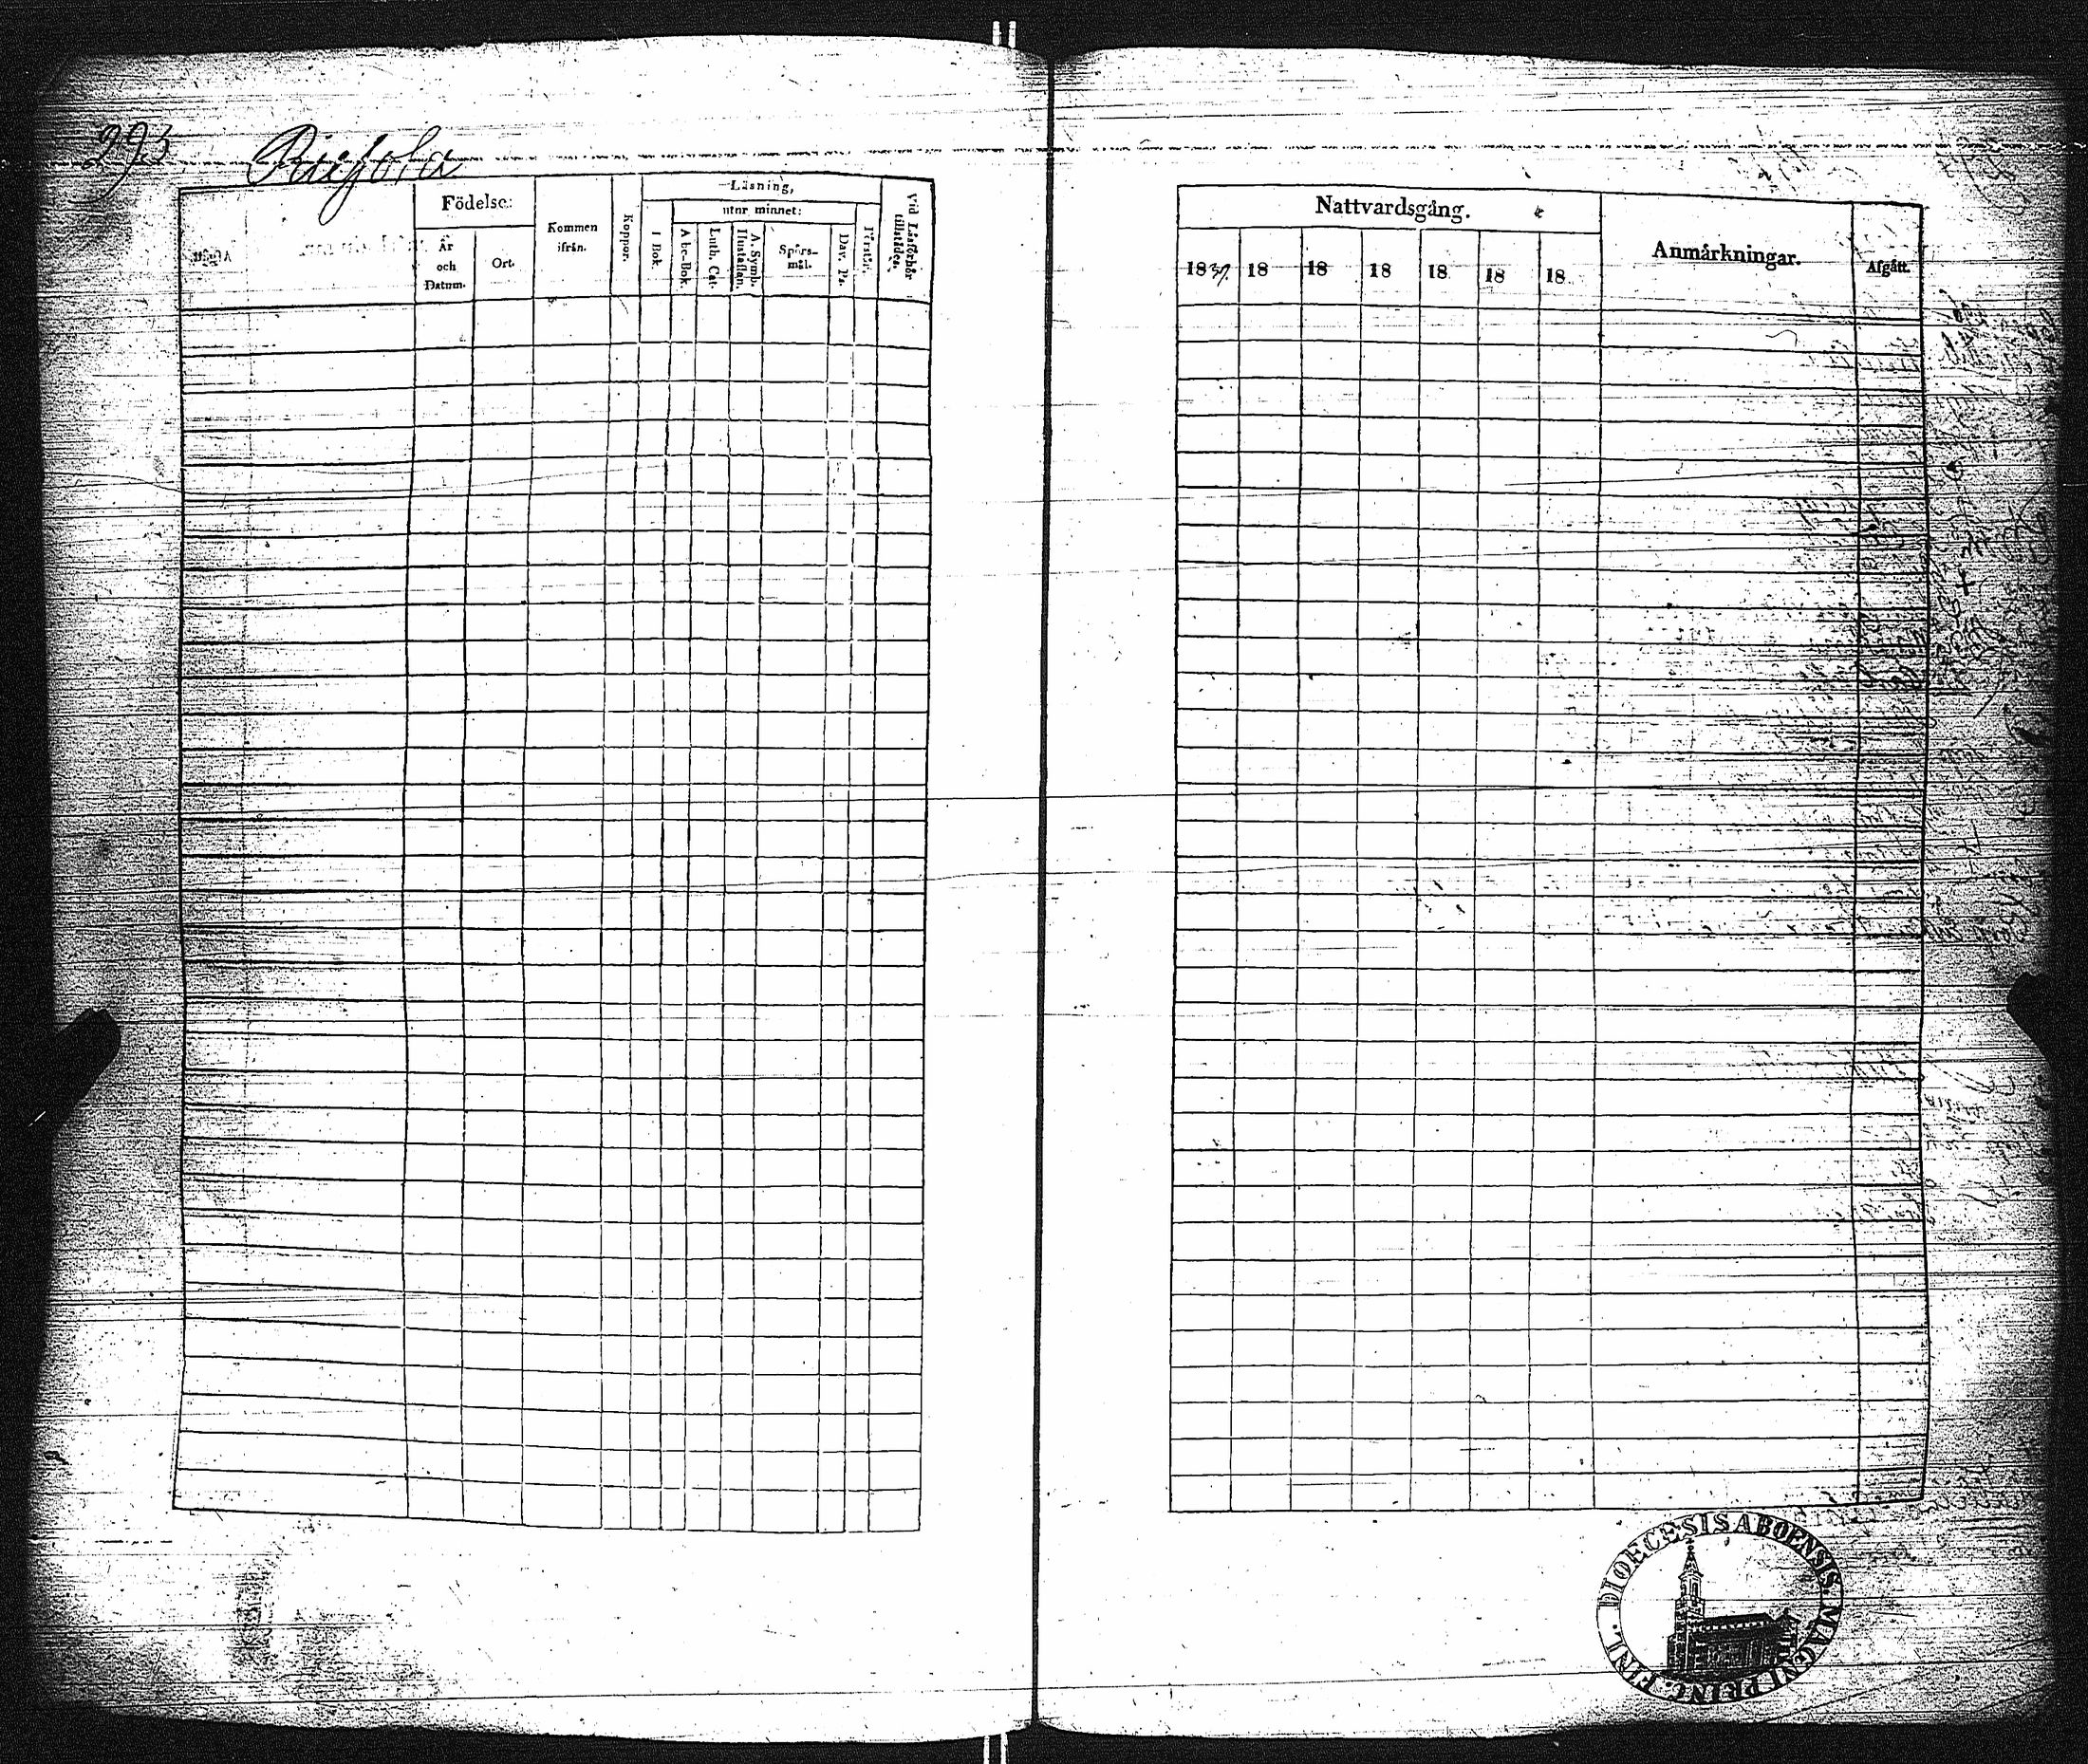 293
Födelse:
År och Datum.
Ort.
Kommen ifrån.
Koppor.
Läsning,
I Bok.
utur minnet:
A bc-Bok.
Luth. Cat.
A. Symb. Hustaflan.
Spörs-mål.
Dav. Ps.
Förstår.
Vid Läsförhör tillstädes.
Nattvardsgång.
1839. 18 18 18 18 18 18
Anmärkningar.
Afgått.
DIOECESIS ABOENSIS. MAGNI PRINC. FINL.